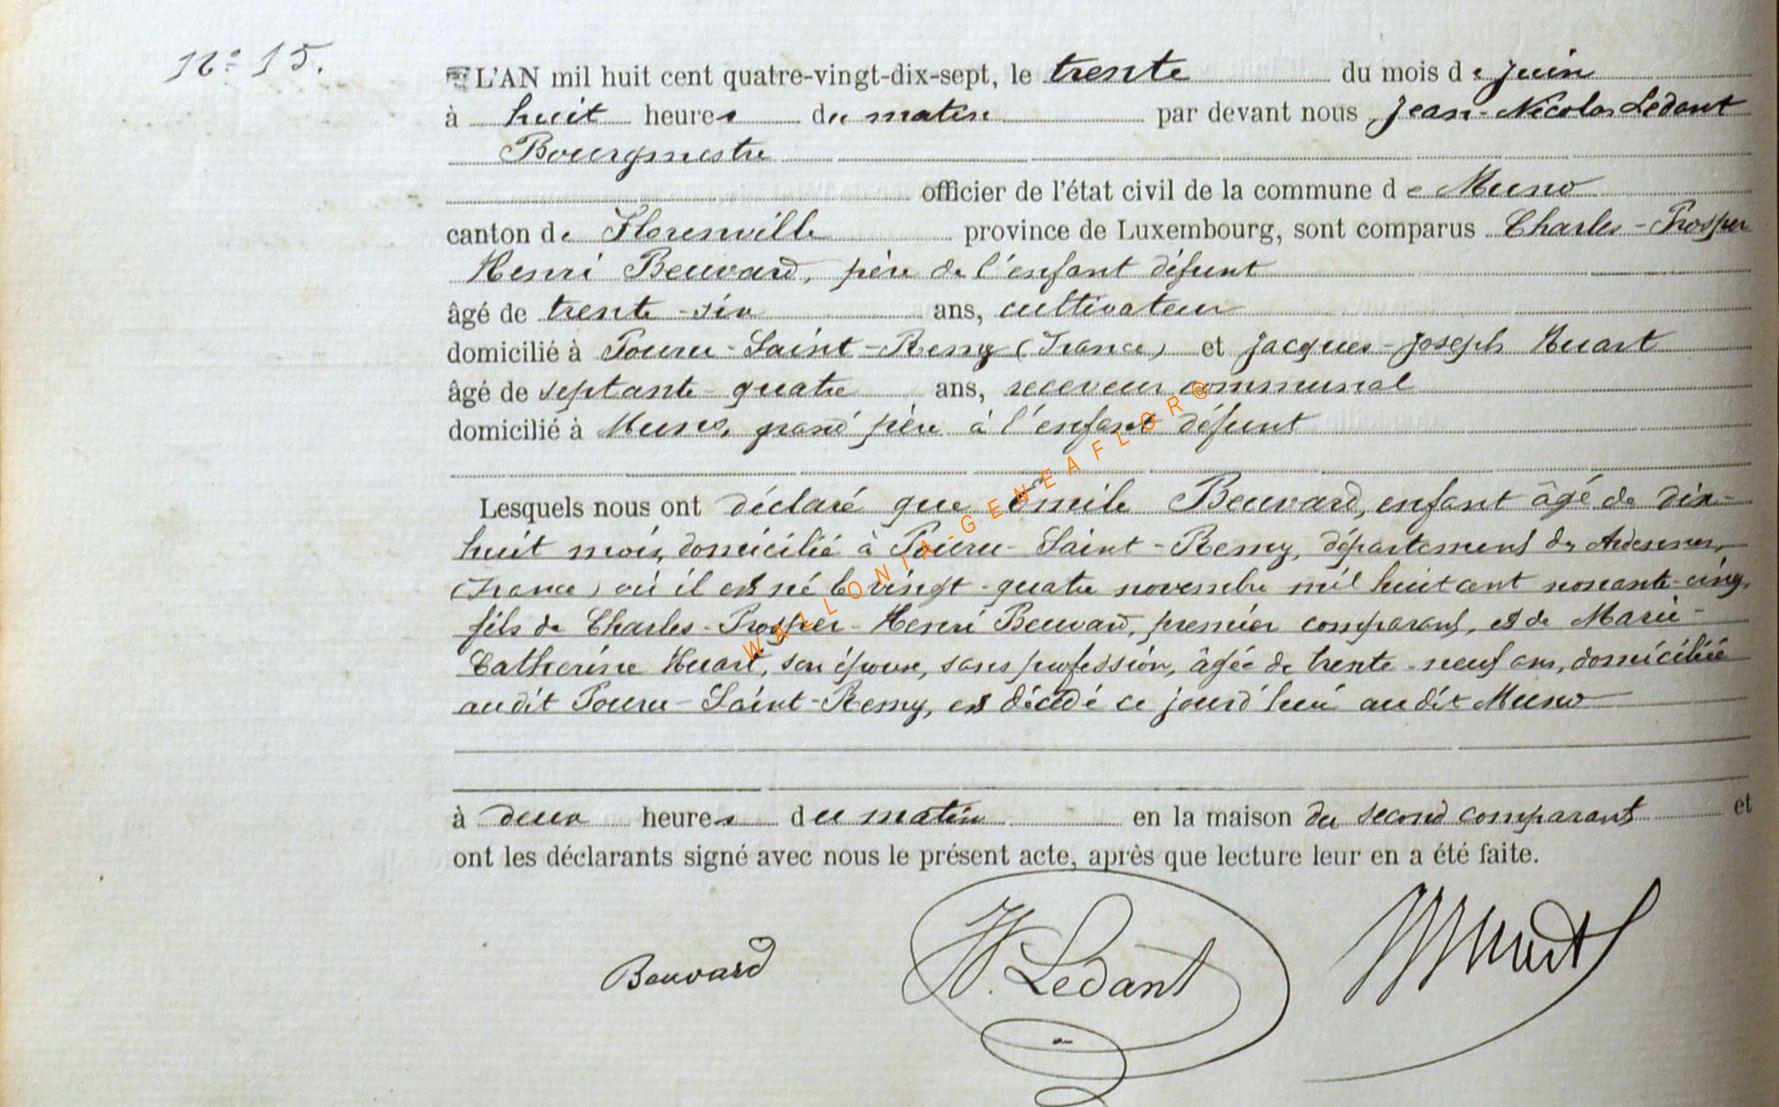 N° 15.
L'AN mil huit cent quatre-vingt-dix-sept, le trente du mois de juin
à huit heures du matin par devant nous Jean-Nicolas Ledant
Bourgmestre
officier de l'état civil de la commune de Muno
canton de Florenville province de Luxembourg, sont comparus Charles-Prosper
Henri Beuvard, père de l'enfant défunt
âgé de trente-six ans, cultivateur
domicilié à Pouru-Saint-Remy (France) et Jacques-Joseph Huart
âgé de septante-quatre ans, receveur communal
domicilié à Muno, grand père à l'enfant défunt
Lesquels nous ont déclaré que Emile Beuvard, enfant âgé de dix-
huit mois, domicilié à Pouru-Saint-Remy, département des Ardennes,
(France) où il est né le vingt-quatre novembre mil huit cent nonante-cinq,
fils de Charles-Prosper-Henri Beuvard, premier comparant, et de Marie-
Catherine Huart, son épouse, sans profession, âgée de trente-neuf ans, domiciliée
au dit Pouru-Saint-Remy, est décédé ce jourd'hui au dit Muno
à deux heures du matin en la maison du second comparant et
ont les déclarants signé avec nous le présent acte, après que lecture leur en a été faite.
Beuvard N. Ledant Huart
WALLONIA-GENEAFLOR®